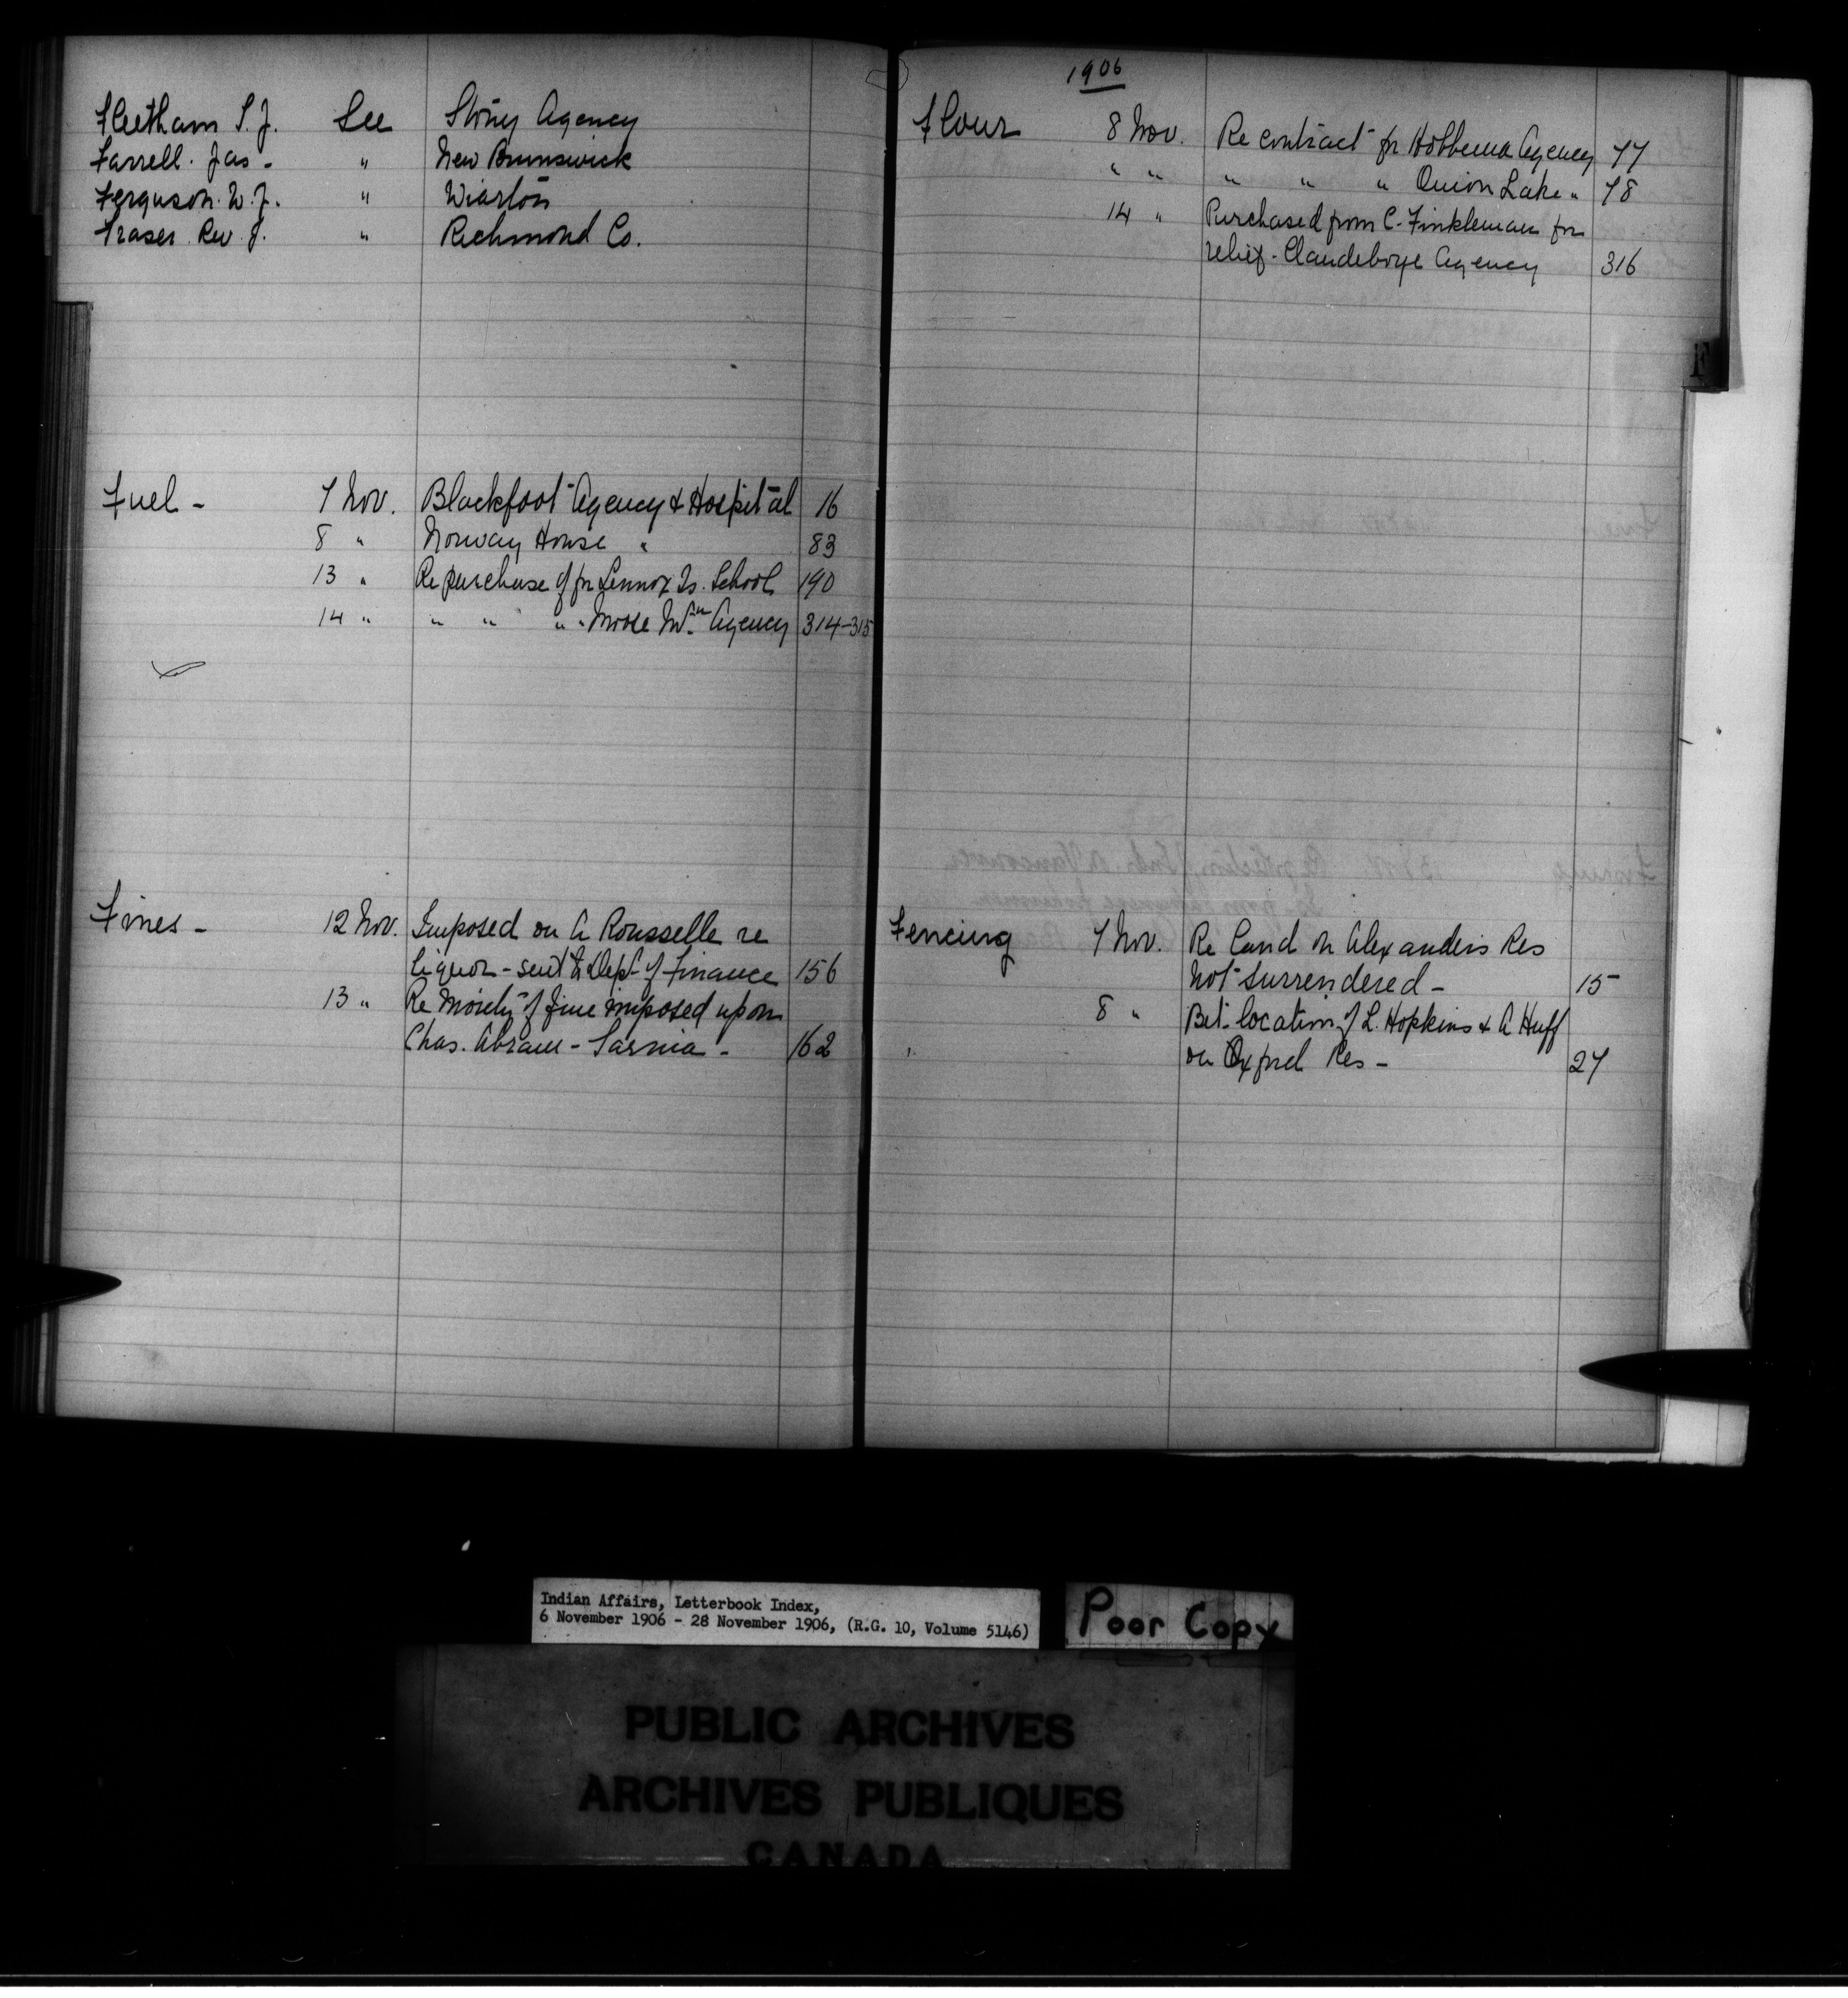 Fleetham T. J. See Stony Agency
Farrell. Jas - " New Brunswick
Ferguson. W. J. " Wiarton
Fraser Rev. J. " Richmond Co.
Fuel - 7 Nov. Blackfoot Agency & Hospital 16
8 " Norway House " 83
13 " Re purchase of for Lennox Is. School 190
14 " " " " " Moose Mtn Agency 314-315
Fines - 12 Nov. Imposed on A Rousselle re
liquor - sent to Dept of Finance 156
13 " Re Moiety of fine imposed upon
Chas. Abram - Sarnia - 162
1906
Flour 8 Nov. Re contract for Hobbema Agency 77
" " " " " Onion Lake " 78
14 " Purchased from C. Finkleman for
relief - Clandeboye Agency 316
F
Fencing 7 Nov. Re Land on Alexanders Res
not surrendered - 15
8 " Bet. location of L. Hopkins & A Huff
on Oxford Res - 27
Indian Affairs, Letterbook Index,
6 November 1906 - 28 November 1906, (R.G. 10, Volume 5146)
Poor Copy
PUBLIC ARCHIVES
ARCHIVES PUBLIQUES
CANADA